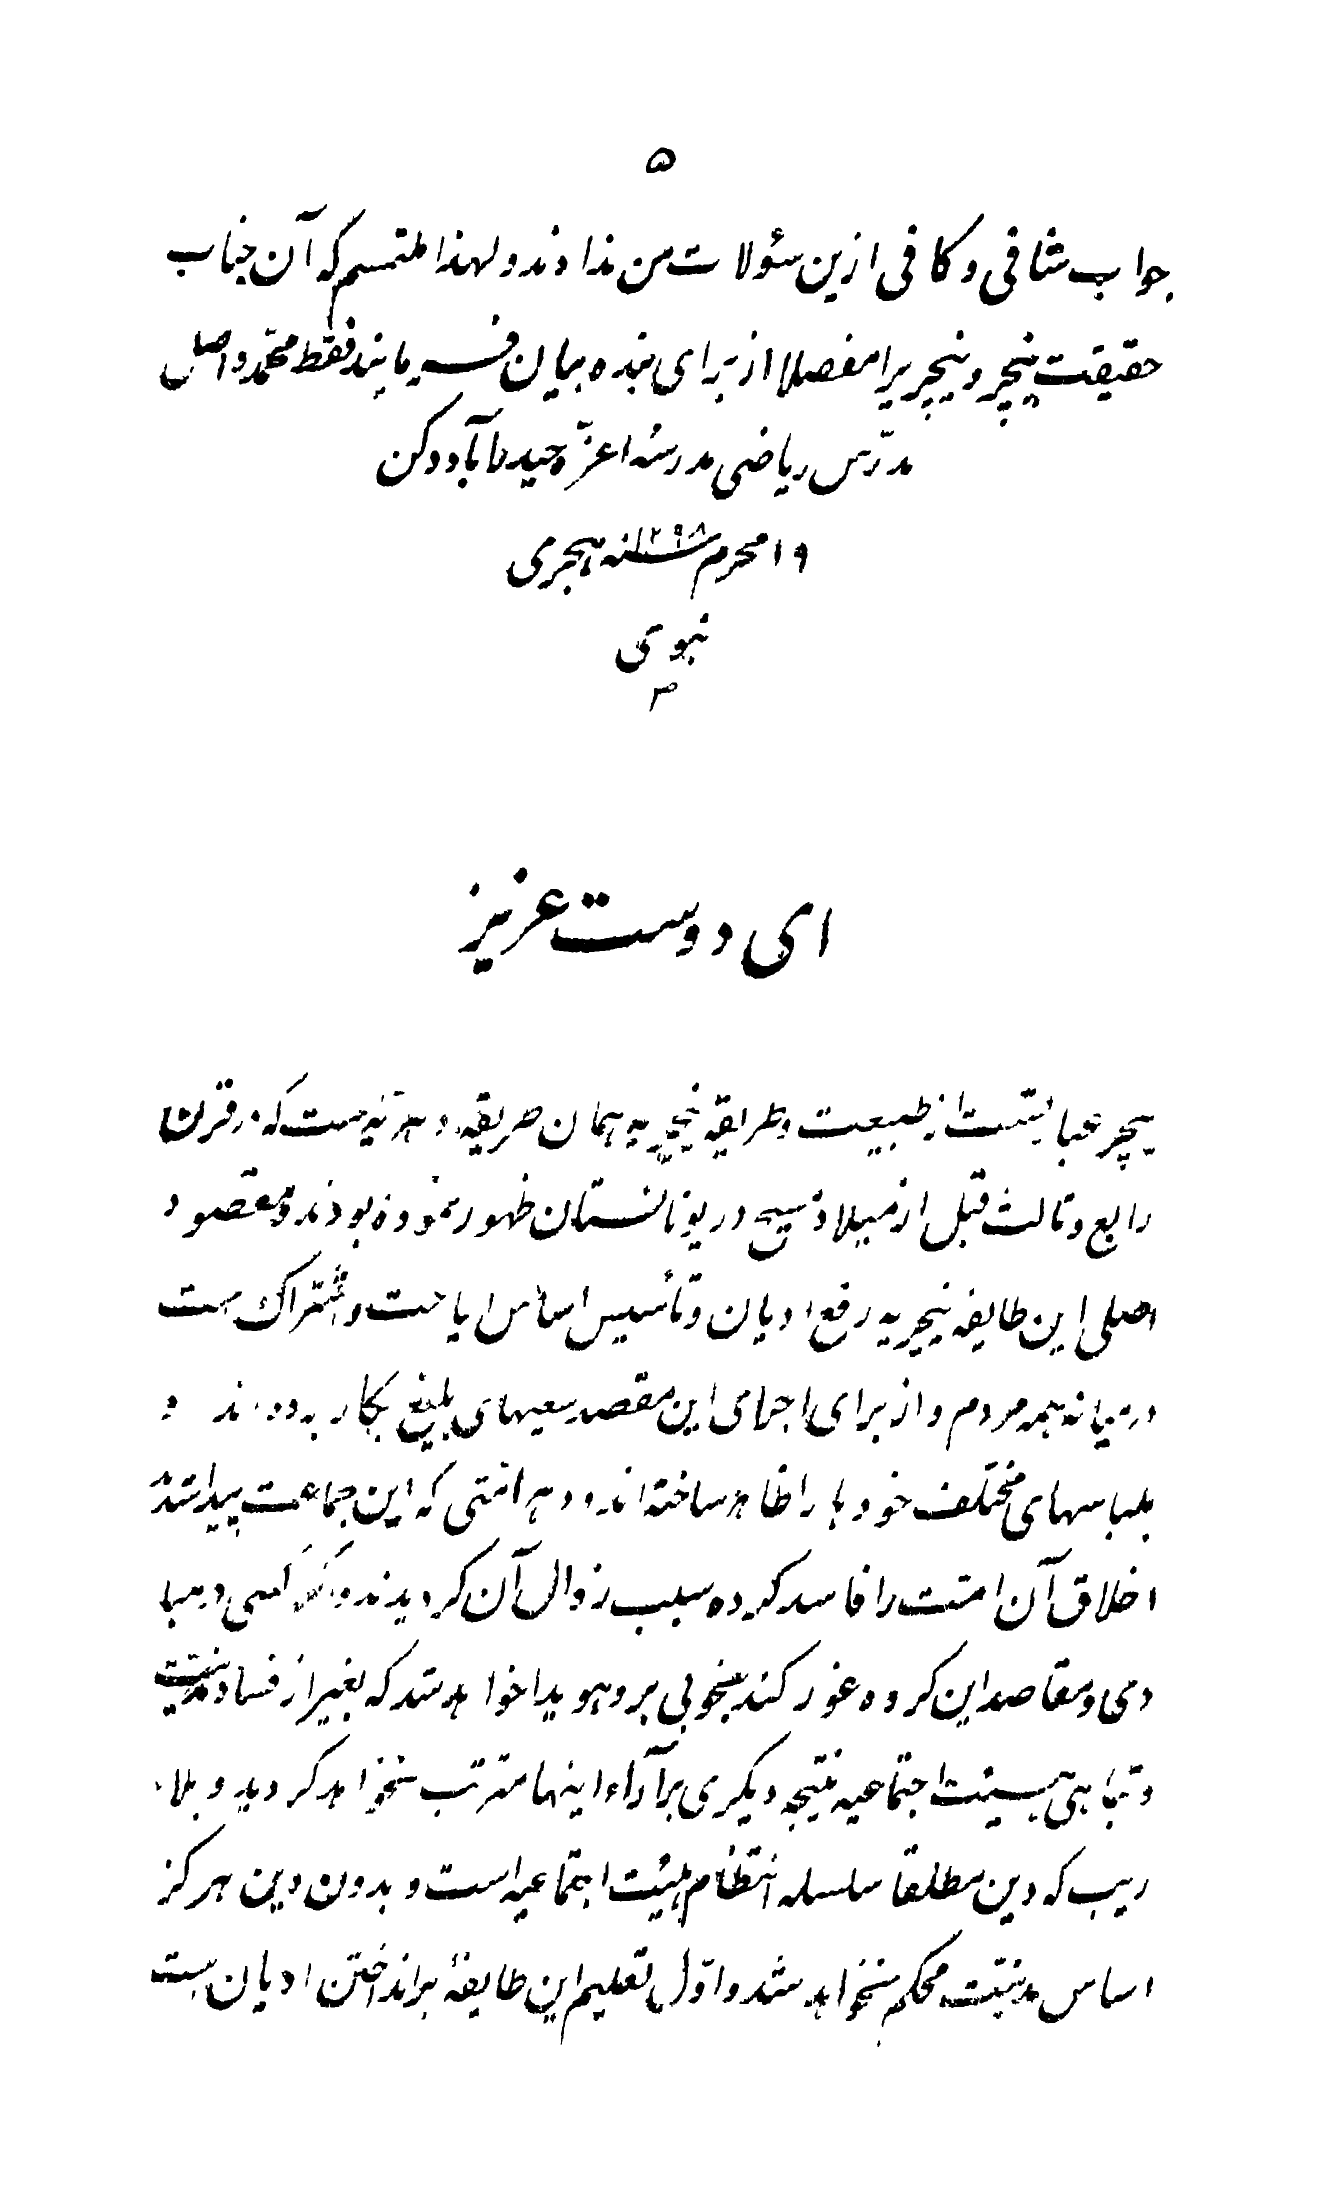 ۵
جواب شافی و کافی ازین سئولات من ندادند و لهذا ملتمسم که آن جناب
حقیقت نیچر و نیچریرا مفصلا از برای بنده بیان فرمایند فقط محمد واصل
مدرّس ریاضی مدرسهٔ اعزّه حیدرآباد دکن
۱۹ محرم سنه ۱۲۹۸ هجری
نبوی
ص
ای دوست عزیز
نیچر عبارتست از طبیعت و طریقه نیچریه همان طریقه دهریه ست که در قرن
رابع و ثالث قبل از میلاد مسیح در یونانستان ظهور نموده بودند و مقصود
اصلی این طایفه نیچریه رفع ادیان و تأسیس اساس اباحت و اشتراک ست
در میانه همه مردم و از برای اجرای این مقصد سعیهای بلیغ بکار برده‌اند و
بلباسهای مختلف خودها را ظاهر ساخته‌اند و در هر امتی که این جماعت پیدا شد
اخلاق آن امت را فاسد کرده سبب زوال آن گردیدند و اگر کسی در مبا
دی و مقاصد این گروه غور کند بخوبی بر و هویدا خواهد شد که بغیر از فساد مدنیت
و تباهی هیئت اجتماعیه نتیجه دیگری بر آراء اینها مترتب نخواهد گردید و بلا
ریب که دین مطلقا سلسله انتظام هیئت اجتماعیه است و بدون دین هرگز
اساس مدنیّت محکم نخواهد شد و اوّل تعلیم این طایفهٔ برانداختن ادیان ست